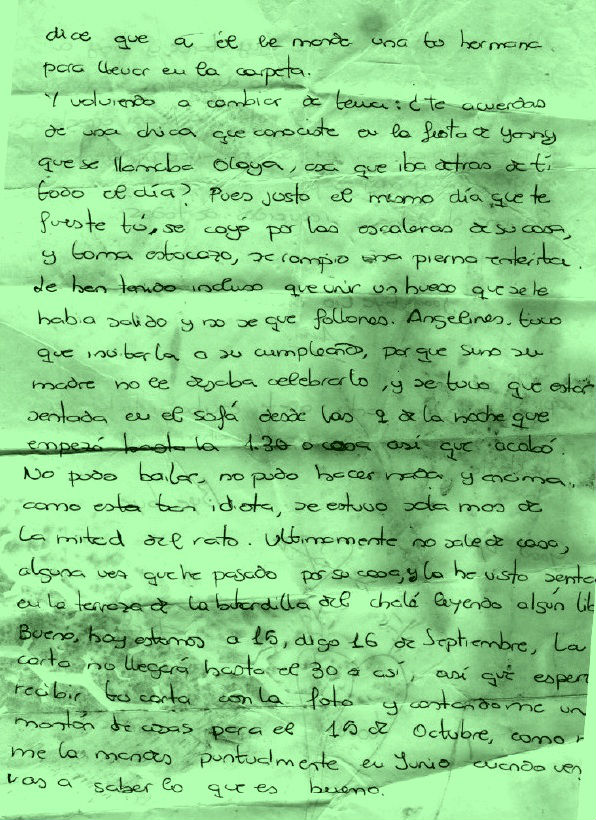 dice que a él le mande una tu hermana
para llevar en la carpeta.
Y volviendo a cambiar de tema: ¿te acuerdas
de una chica que conociste en la fiesta de Yonny
que se llamaba Olaya, osa que iba detras de tí
todo el día? Pues justo el mismo día que te
fueste tú, se cayó por las escaleras de su casa,
y toma estocazo, se rompio una pierna enterita.
Le han tenido incluso que unir un hueso que se le
habia salido y no se que follones. Angelines, tuvo
que invitarla a su cumpleaños, porque sino su
madre no le dejaba celebrarlo, y se tuvo que estar
sentada en el sofá desde las 9 de la noche que
empezó hasta la 1.30 o cosa así que acabó.
No pudo bailar, no pudo hacer nada y encima,
como esta tan idiota, se estuvo sola mas de
la mitad del rato. Ultimamente no sale de casa,
alguna vez que he pasado por su casa, y la he visto senta
en la terraza de la buardilla del chalé leyendo algún lib
Bueno, hoy estamos a 15, digo 16 de Septiembre, La
carta no llegará hasta el 30 o así, así que esper
recibir tu carta con la foto y contandome un
montón de cosas para el 15 de Octubre, como n
me la mandes puntualmente en Junio cuando ven
vas a saber lo que es bueno.